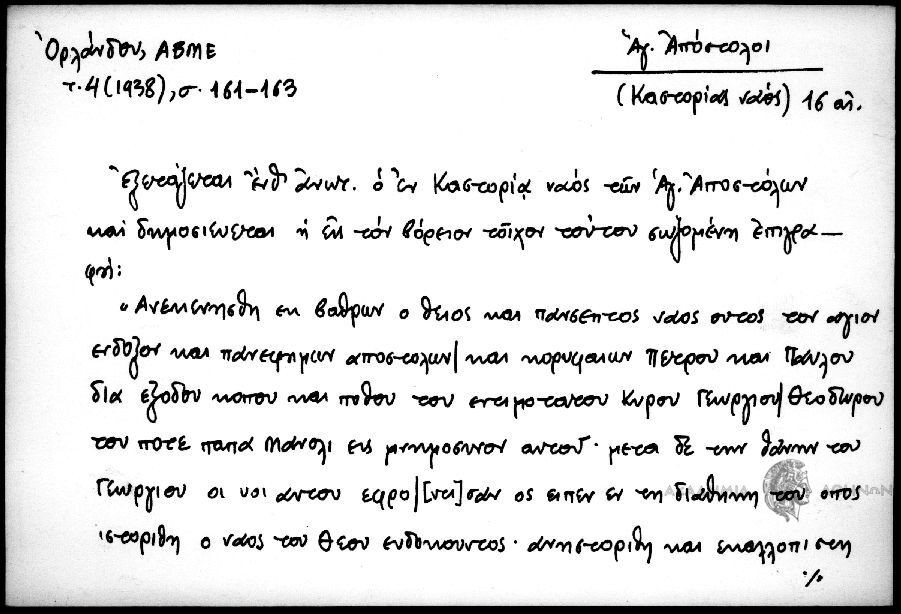 Ὀρλάνδου, ΑΒΜΕ
τ. 4 (1938), σ. 161–163
Ἁγ. Ἀπόστολοι
(Καστορίας ναός) 16 αἰ.
Ἐξετάζεται ἐνθ' ἀνωτ. ὁ ἐν Καστορίᾳ ναός τῶν Ἁγ. Ἀποστόλων
καί δημοσιεύεται ἡ εἰς τόν βόρειον τοῖχον τούτου σωζομένη ἐπιγρα–
φή:
"Ανεκενησθη εκ βαθρων ο θειος και πανσεπτος ναος ουτος τον αγιον
ενδοξον και πανεφημων αποστολων| και κορυφαιων Πετρου και Παυλου
δια εξοδου κοπου και ποθου του εντιμοτατου Κυρου Γεωργιου| Θεοδωρου
του ποτε παπα Μανολι εις μνημοσυνον αυτου· μετα δε την θανην του
Γεωργιου οι υοι αυτου εφρο|[ντι]σαν ος ειπεν εν τη διαθηκη του οπος
ιστοριθη ο ναος του Θεου ευδοκουντος· ανηστοριθη και εκαλλοπιστη
·/.
ΑΚΑΔΗΜΙΑ ΑΘΗΝΩΝ